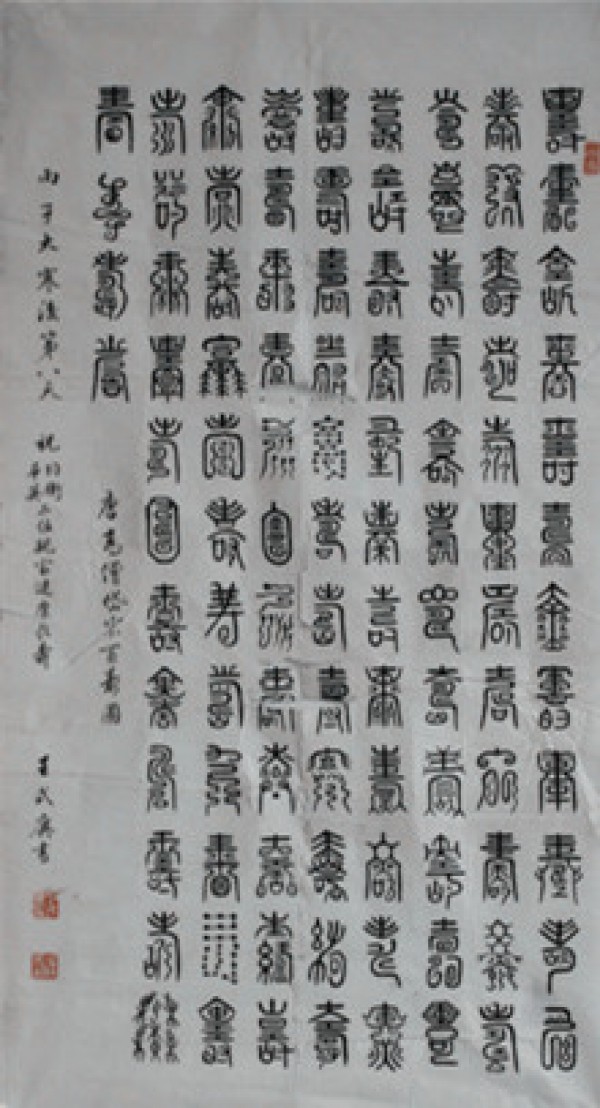 壽壽壽壽壽壽壽壽壽壽壽壽
壽壽壽壽壽壽壽壽壽壽壽壽
壽壽壽壽壽壽壽壽壽壽壽壽
壽壽壽壽壽壽壽壽壽壽壽壽
壽壽壽壽壽壽壽壽壽壽壽壽
壽壽壽壽壽壽壽壽壽壽壽壽
壽壽壽壽壽壽壽壽壽壽壽壽
壽壽壽壽壽壽壽壽壽壽壽壽
壽壽壽壽
唐高僧岱宗百壽圖
丙子大寒後第八天 祝 二位親家健康長壽 王武書